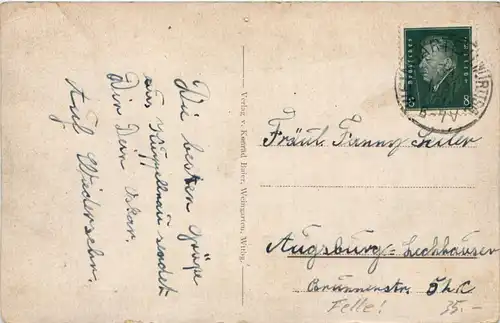 Die besten Grüße
aus Küppellnau sendet
Dir Dein Oskar.
Auf Wiedersehn.
Verlag v. Konrad Baier, Weingarten, Wttbg.
Fräul. Fanny Seiler
Augsburg-Lechhausen
Brunnenstr. 5 h.
Felle!
35.-
8 8